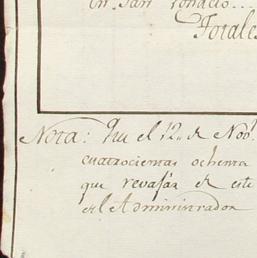 en San Ignacio...
Totales
Nota: Que el 12,, de Nov.
cuatrocientas ochenta
que revasan de este
el Administrador